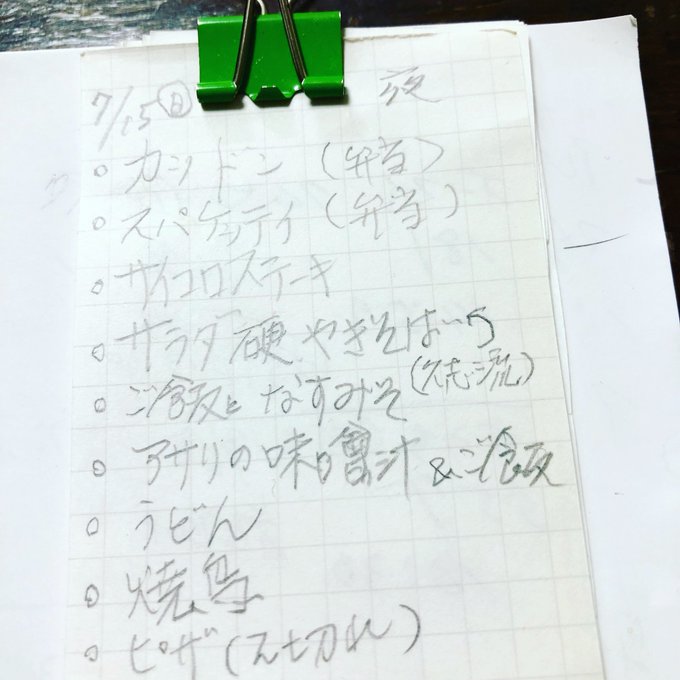 7/15 日 夜
。カツドン(弁当)
。スパゲッティ(弁当)
。サイコロステーキ
。サラダ硬やきそば
(久志流)
。ご飯となすみそ
。アサリの味噌汁 &ご飯
。うどん
。焼鳥
。ピザ(二切れ)